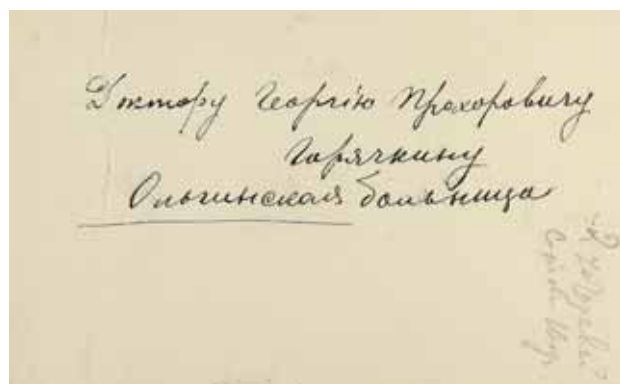 Доктору Георгію Прохоровичу
Горячкину
Ольгинская больница